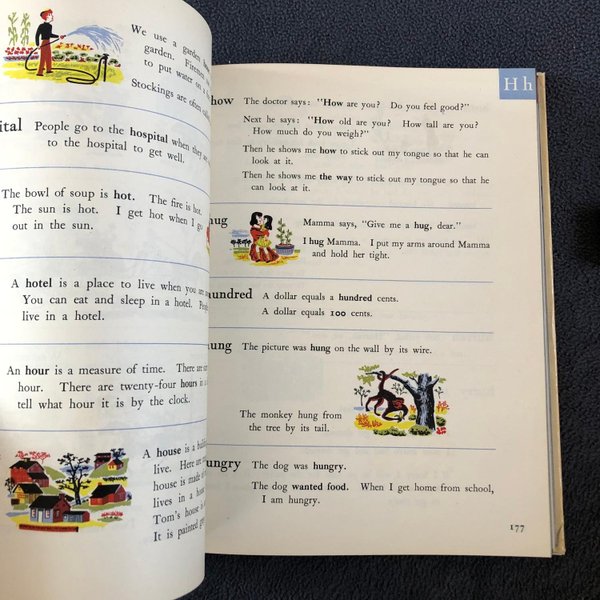 We use a garden
garden. Firemen
to put water on a
Stockings are often
ital People go to the hospital when they are
to the hospital to get well.
The bowl of soup is hot. The fire is hot.
The sun is hot. I get hot when I go
out in the sun.
A hotel is a place to live when you are
You can eat and sleep in a hotel.
live in a hotel.
An hour is a measure of time. There are
hour. There are twenty-four hours in a
tell what hour it is by the clock.
A house is a
live. Here are
house is made
lives in a
Tom's house is
It is painted
H h
how The doctor says: "How are you? Do you feel good?"
Next he says: "How old are you? How tall are you?
How much do you weigh?"
Then he shows me how to stick out my tongue so that he can
look at it.
Then he shows me the way to stick out my tongue so that he
can look at it.
hug Mamma says, "Give me a hug, dear."
I hug Mamma. I put my arms around Mamma
and hold her tight.
hundred A dollar equals a hundred cents.
A dollar equals 100 cents.
hung The picture was hung on the wall by its wire.
The monkey hung from
the tree by its tail.
hungry The dog was hungry.
The dog wanted food. When I get home from school,
I am hungry.
177